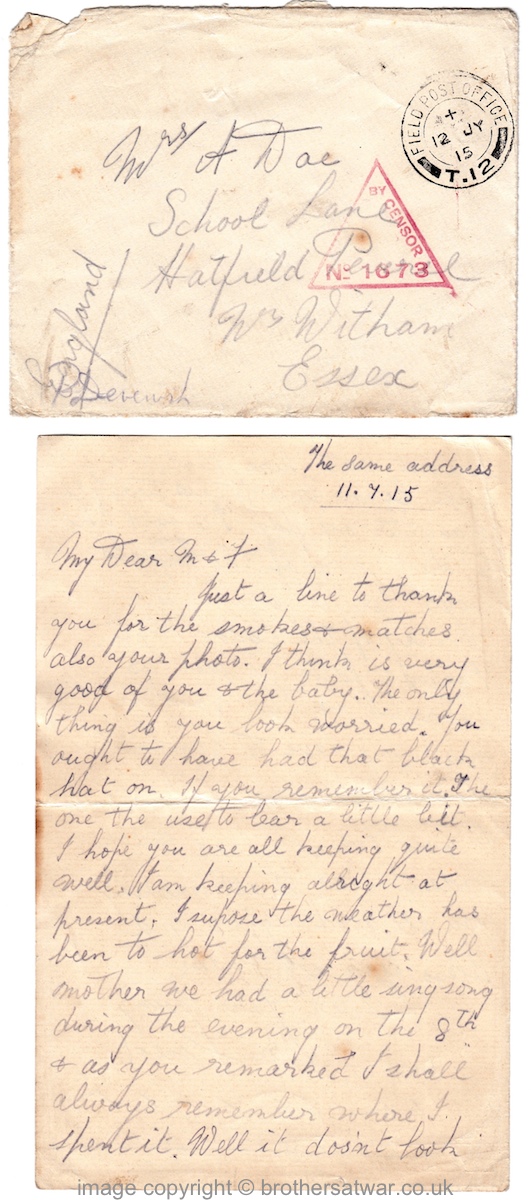 FIELD POST OFFICE
12 JY
15
T.12
Mrs A Doe
School Lane
Hatfield Peverel
Nr Witham
Essex
England
BY CENSOR
No 1673
The same address
11.7.15
My Dear M & F
Just a line to thank
you for the smokes & matches.
also your photo. I think is very
good of you & the baby. The only
thing is you look worried. You
ought to have had that black
hat on. If you remember it. The
one the use to bear a little bit.
I hope you are all keeping quite
well. I am keeping allright at
present. I supose the weather has
been to hot for the fruit. Well
mother we had a little singsong
during the evening on the 8th
& as you remarked I shall
always remember where I
spent it. Well it dosnt look
image copyright © brothersatwar.co.uk